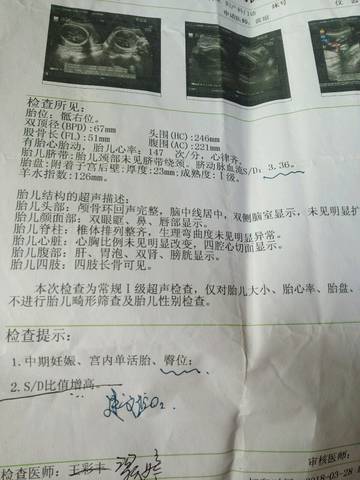 妇产科门诊 床号
申请医师:
检查所见:
胎位: 骶右位。
双顶径(BPD):67mm 头围(HC):246mm
股骨长(FL):51mm 腹围(AC):221mm
有胎心胎动, 胎儿心率: 147 次/分, 心律齐。
胎儿脐带: 胎儿颈部未见脐带绕颈。脐动脉血流S/D: 3.36。
胎盘: 附着于宫后壁; 厚度:23mm;成熟度:Ⅰ级。
羊水指数:126mm。
胎儿结构的超声描述:
胎儿头部: 颅骨环回声完整, 脑中线居中, 双侧脑室显示, 未见明显扩
胎儿颜面部: 双眼眶、鼻、唇部显示。
胎儿脊柱: 椎体排列整齐, 生理弯曲度未见明显异常。
胎儿心脏: 心胸比例未见明显改变, 四腔心切面显示。
胎儿腹部: 肝、胃泡、双肾、膀胱显示。
胎儿四肢: 四肢长骨可见。
本次检查为常规Ⅰ级超声检查, 仅对胎儿大小、胎心率、胎盘、
不进行胎儿畸形筛查及胎儿性别检查。
检查提示:
1.中期妊娠、宫内单活胎、臀位;
2.S/D比值增高。
O₂.
检查医师: 王彩丰
审核医师:
2018-03-28